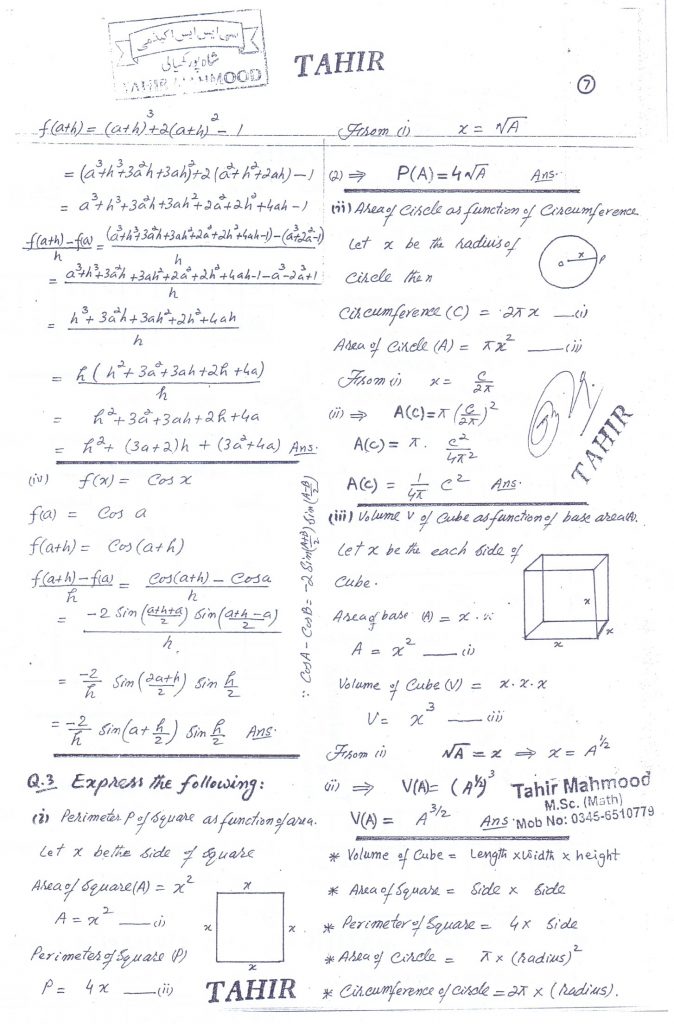 سی ایس ایس اکیڈمی
شاہ پور کمیالی
TAHIR MAHMOOD
TAHIR
7
f(a+h) = (a+h)³+2(a+h)² - 1
= (a³+h³+3a²h+3ah²)+2(a²+h²+2ah) - 1
= a³+h³+3a²h+3ah²+2a²+2h²+4ah-1
f(a+h)-f(a)/h = (a³+h³+3a²h+3ah²+2a²+2h²+4ah-1)-(a³+2a²-1)/h
= a³+h³+3a²h+3ah²+2a²+2h²+4ah-1-a³-2a²+1/h
= h³+3a²h+3ah²+2h²+4ah/h
= h(h²+3a²+3ah+2h+4a)/h
= h²+3a²+3ah+2h+4a
= h²+(3a+2)h+(3a²+4a) Ans.
(iv) f(x) = Cos x
f(a) = Cos a
f(a+h) = Cos(a+h)
f(a+h)-f(a)/h = Cos(a+h) - Cosa/h
= -2 Sin(a+h+a/2) Sin(a+h-a/2)/h
= -2/h Sin(2a+h/2) Sin h/2
= -2/h Sin(a+h/2) Sin h/2 Ans.
∵ CosA - CosB = -2 Sin(A+B/2) Sin(A-B/2)
Q.3 Express the following:
(i) Perimeter P of Square as function of area.
Let x be the Side of Square
Area of Square (A) = x²
A = x² —(i)
Perimeter of Square (P)
P = 4x —(ii)
x
x
x
x
TAHIR
From (i) x = √A
(2) ⇒ P(A) = 4√A Ans.
(ii) Area of Circle as function of Circumference
Let x be the radius of
Circle then
o x P
Circumference (C) = 2πx —(i)
Area of Circle (A) = πx² —(ii)
From (i) x = C/2π
(ii) ⇒ A(C) = π(C/2π)²
A(C) = π. C²/4π²
A(C) = 1/4π C² Ans.
TAHIR
(iii) Volume V of Cube as function of base area(A).
Let x be the each Side of
Cube.
Area of base (A) = x.x
A = x² —(i)
x
x
x
Volume of Cube (V) = x.x.x
V = x³ —(ii)
From (i) √A = x ⇒ x = A^1/2
(ii) ⇒ V(A) = (A^1/2)³
V(A) = A^3/2 Ans
Tahir Mahmood
M.Sc. (Math)
Mob No: 0345-6510779
* Volume of Cube = Length x Width x height
* Area of Square = Side x Side
* Perimeter of Square = 4 x Side
* Area of Circle = π x (radius)²
* Circumference of Circle = 2π x (radius).